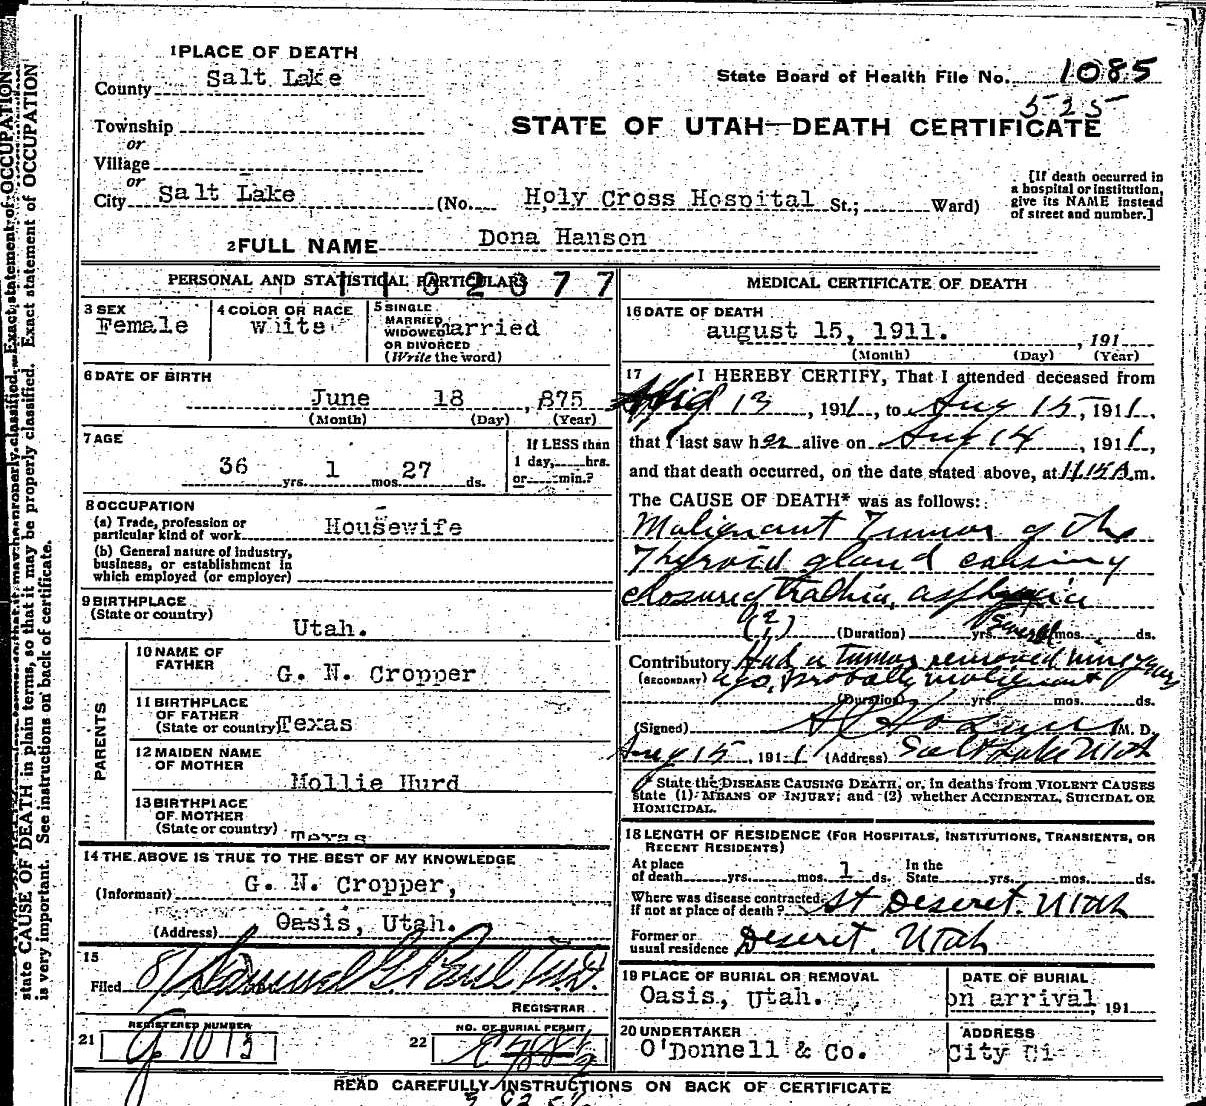 1 PLACE OF DEATH
County Salt Lake
State Board of Health File No. 1085
525
Township
or
Village
or
STATE OF UTAH—DEATH CERTIFICATE
City Salt Lake (No. Holy Cross Hospital St.; Ward)
[If death occurred in
a hospital or institution,
give its NAME instead
of street and number.]
2 FULL NAME Dona Hanson
PERSONAL AND STATISTICAL PARTICULARS
3 SEX
Female
4 COLOR OR RACE
White
5 SINGLE
MARRIED
WIDOWED
OR DIVORCED
(Write the word)
married
6 DATE OF BIRTH
June 18, 875
(Month) (Day) (Year)
7 AGE
36 yrs. 1 mos. 27 ds.
If LESS than
1 day, hrs.
or min.?
8 OCCUPATION
(a) Trade, profession or
particular kind of work Housewife
(b) General nature of industry,
business, or establishment in
which employed (or employer)
9 BIRTHPLACE
(State or country)
Utah.
PARENTS
10 NAME OF
FATHER
G. N. Cropper
11 BIRTHPLACE
OF FATHER
(State or country) Texas
12 MAIDEN NAME
OF MOTHER
Mollie Hurd
13 BIRTHPLACE
OF MOTHER
(State or country) Texas
14 THE ABOVE IS TRUE TO THE BEST OF MY KNOWLEDGE
(Informant) G. N. Cropper,
(Address) Oasis, Utah.
15
Filed 8/ Samuel G. Paul M.D.
REGISTRAR
21 REGISTERED NUMBER
22 NO. OF BURIAL PERMIT
MEDICAL CERTIFICATE OF DEATH
16 DATE OF DEATH
august 15, 1911. , 191
(Month) (Day) (Year)
17 I HEREBY CERTIFY, That I attended deceased from
Aug 13, 1911, to Aug 15, 1911,
that I last saw her alive on Aug 14, 1911,
and that death occurred, on the date stated above, at 11.15 A.m.
The CAUSE OF DEATH* was as follows:
Malignant Tumor of the
Thyroid gland causing
closure of trachia, asphyxia
(Duration) yrs. Several mos. ds.
Contributory Had a tumor removed nine years
(SECONDARY) ago, probably malignant
(Duration) yrs. mos. ds.
(Signed) M. D.
Aug 15, 1911 (Address) Salt Lake Utah
* State the DISEASE CAUSING DEATH, or, in deaths from VIOLENT CAUSES
state (1) MEANS OF INJURY; and (2) whether ACCIDENTAL, SUICIDAL OR
HOMICIDAL.
18 LENGTH OF RESIDENCE (FOR HOSPITALS, INSTITUTIONS, TRANSIENTS, OR
RECENT RESIDENTS)
At place
of death yrs. mos. 1 ds.
In the
State yrs. mos. ds.
Where was disease contracted,
if not at place of death? At Deseret. Utah
Former or
usual residence Deseret. Utah
19 PLACE OF BURIAL OR REMOVAL
Oasis, Utah.
DATE OF BURIAL
on arrival 191
20 UNDERTAKER
O'Donnell & Co.
ADDRESS
City
READ CAREFULLY INSTRUCTIONS ON BACK OF CERTIFICATE
state CAUSE OF DEATH in plain terms, so that it may be properly classified. Exact statement of OCCUPATION
is very important. See instructions on back of certificate.